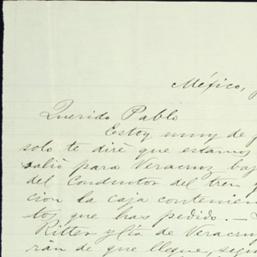 México,
Querido Pablo
Estoy muy de p
solo te diré que estamos
salió para Veracruz baj
del Conductor del tren y
cion la caja contenien
tos que has pedido. —
Ritter y Cía de Veracruz
rán de que llegue, segu